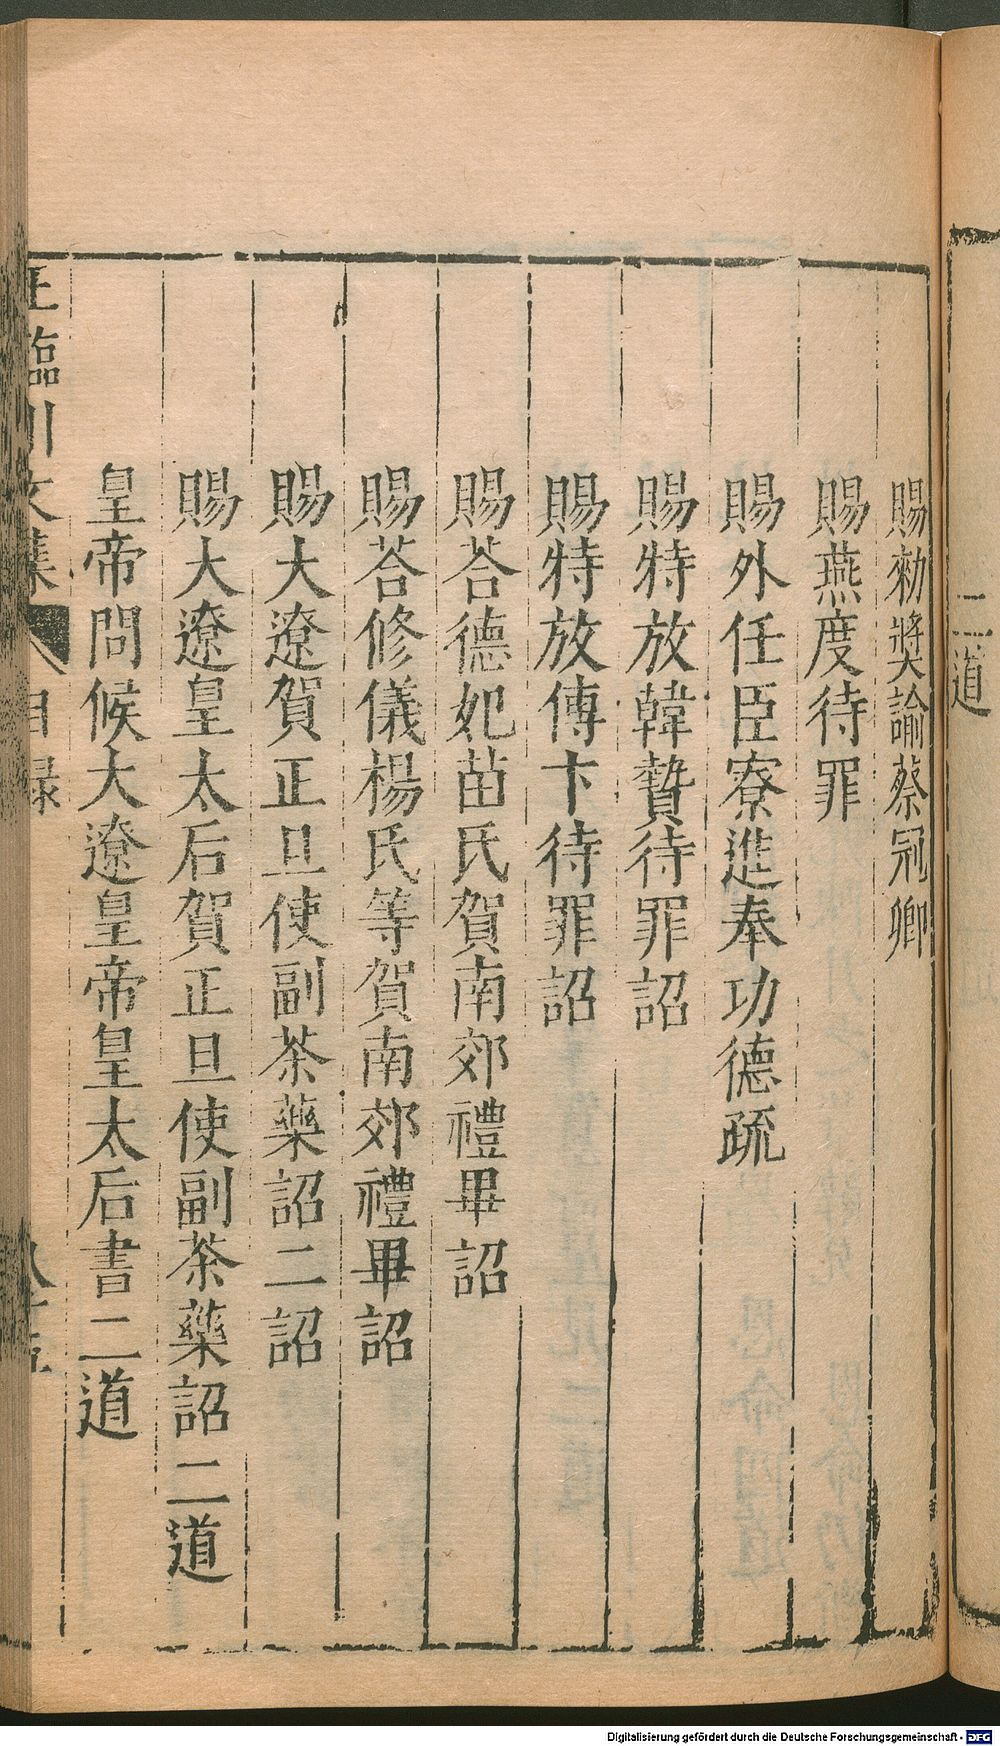 二道
賜勑奬諭蔡冠卿
賜燕度待罪
賜外任臣寮進奉功德疏
賜特放韓贄待罪詔
賜特放傅卞待罪詔
賜荅德妃苗氏賀南郊禮畢詔
賜荅修儀楊氏等賀南郊禮畢詔
賜大遼賀正旦使副茶藥詔二詔
賜大遼皇太后賀正旦使副茶藥詔二道
皇帝問候大遼皇帝皇太后書二道
王臨川文集 目録
Digitalisierung gefördert durch die Deutsche Forschungsgemeinschaft - DFG